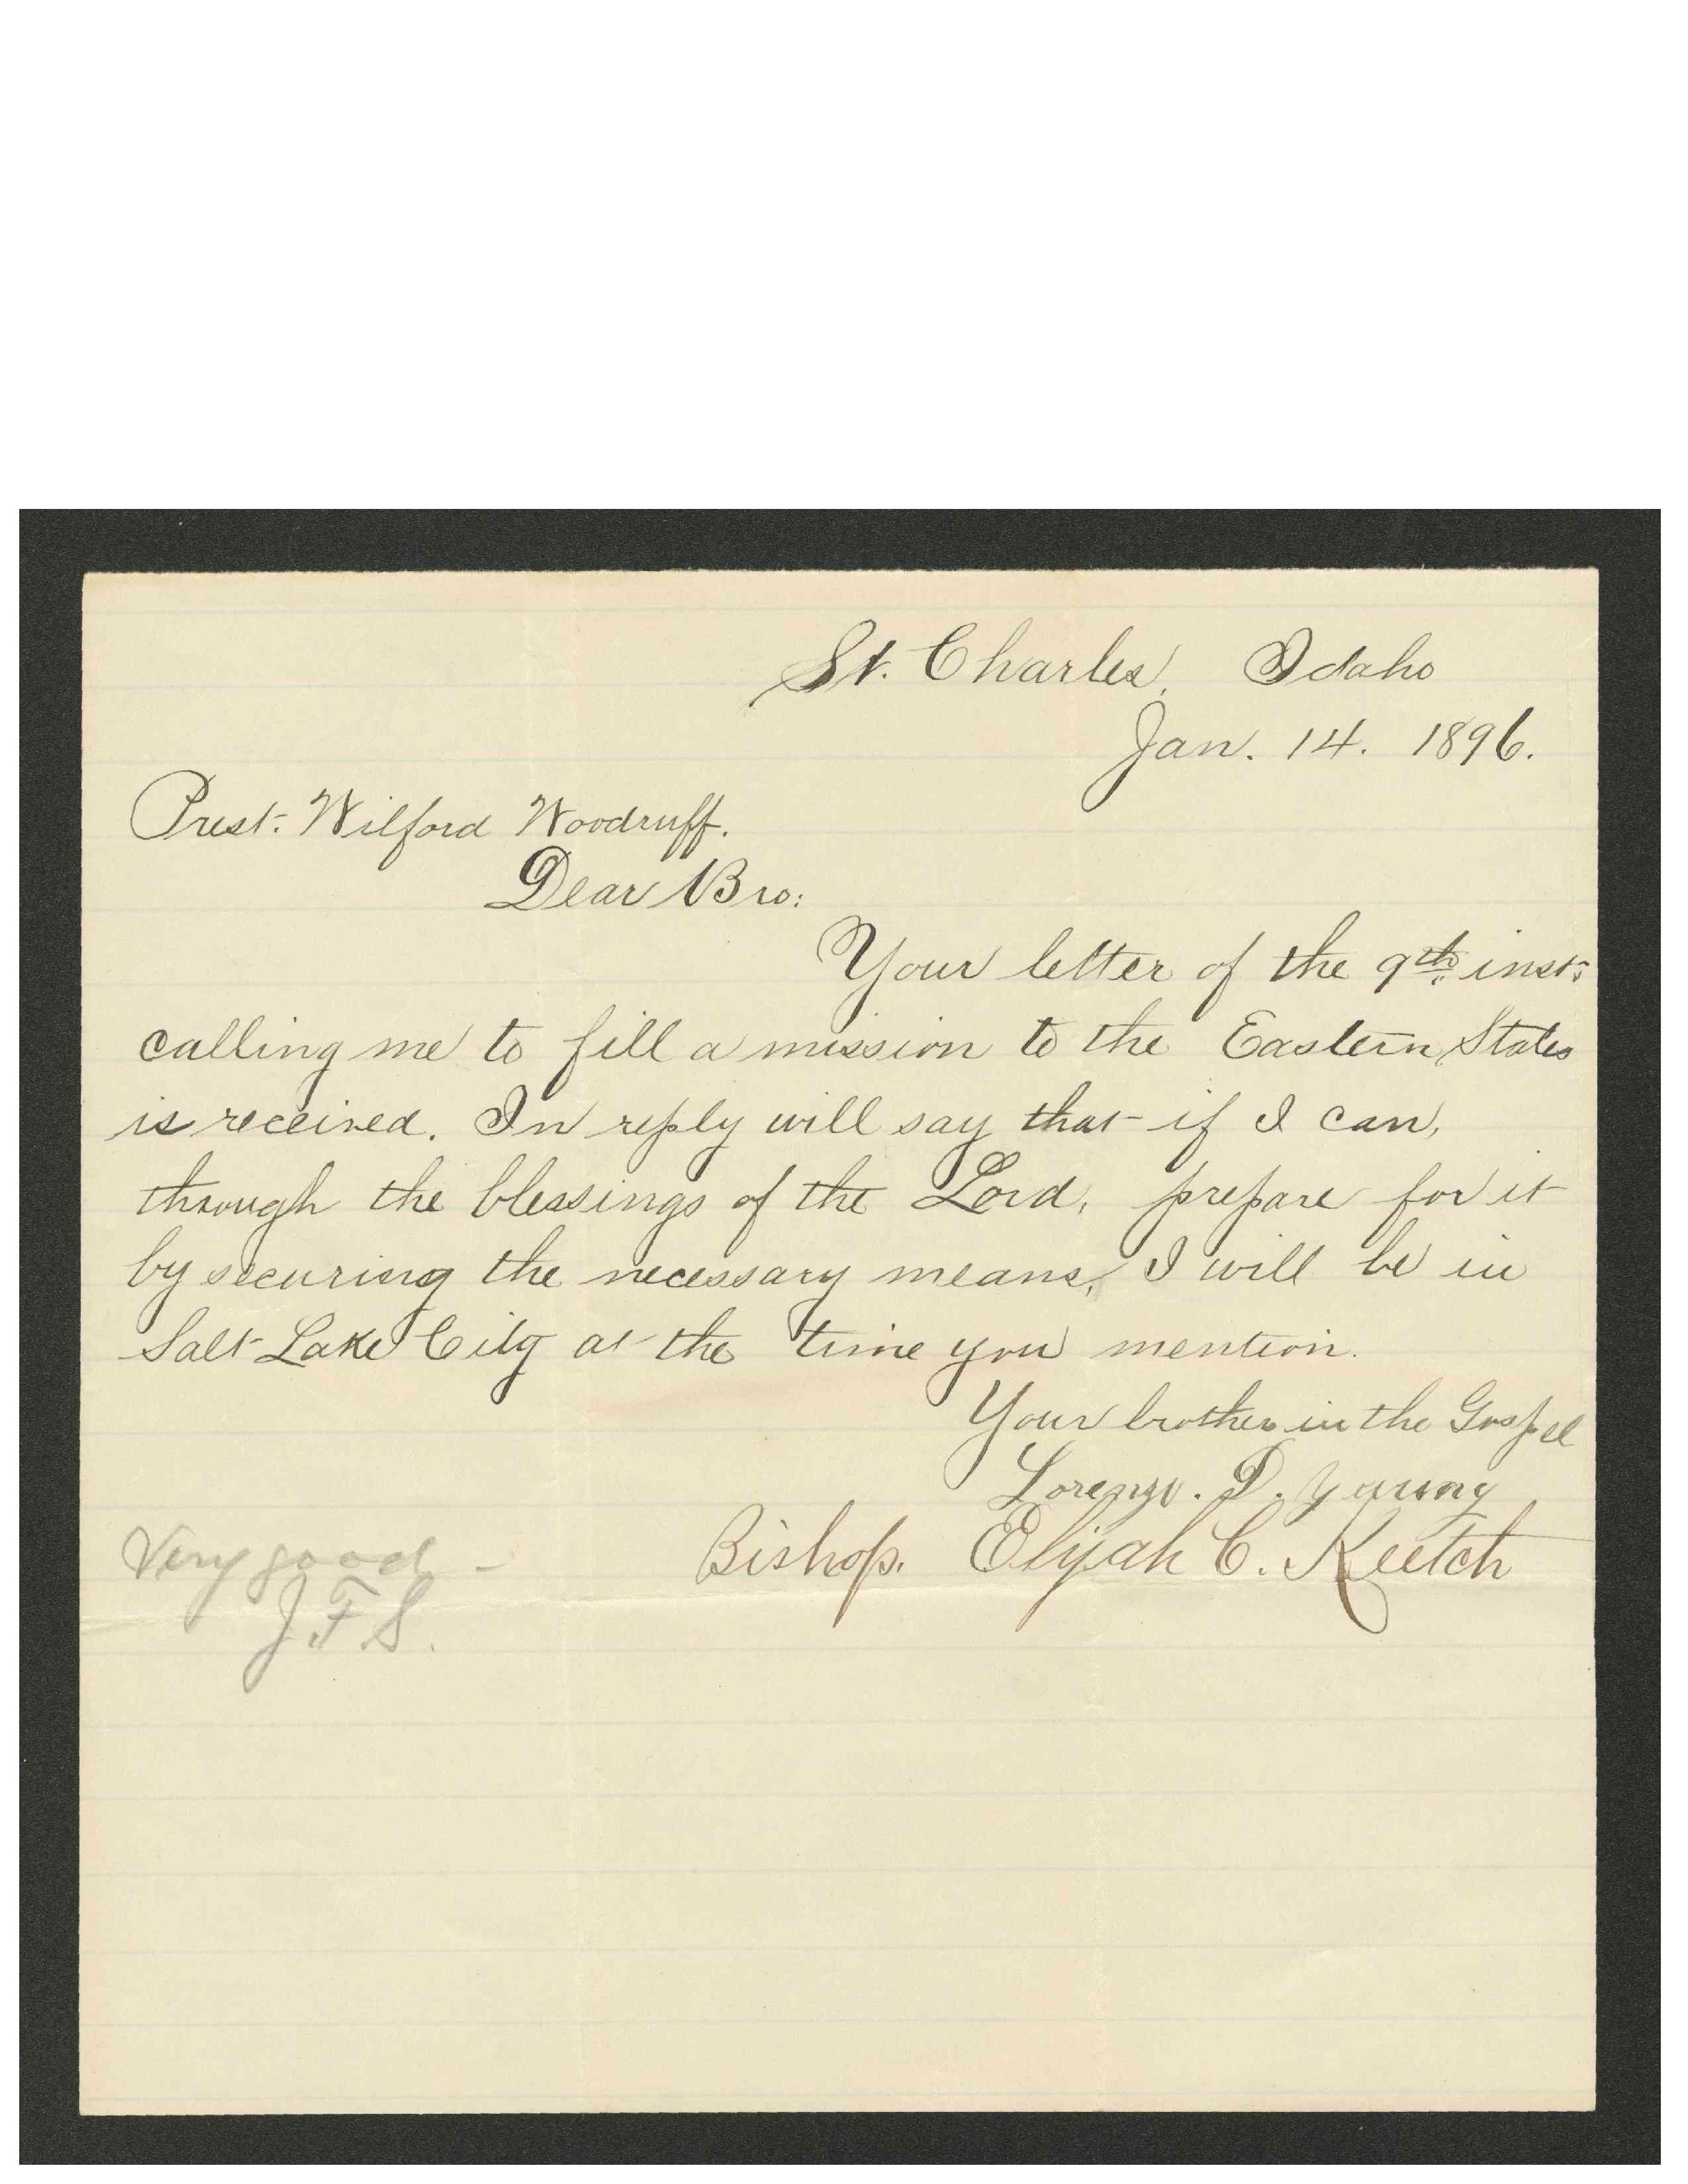 St. Charles, Idaho
Jan. 14. 1896.
Prest. Wilford Woodruff.
Dear Bro:
Your letter of the 9th inst.
calling me to fill a mission to the Eastern States
is received. In reply will say that if I can,
through the blessings of the Lord, prepare for it
by securing the necessary means, I will be in
Salt Lake City at the time you mention.
Your brother in the Gospel
Lorenzo. D. Young
Bishop. Elijah C. Keetch
Very good –
J F S.